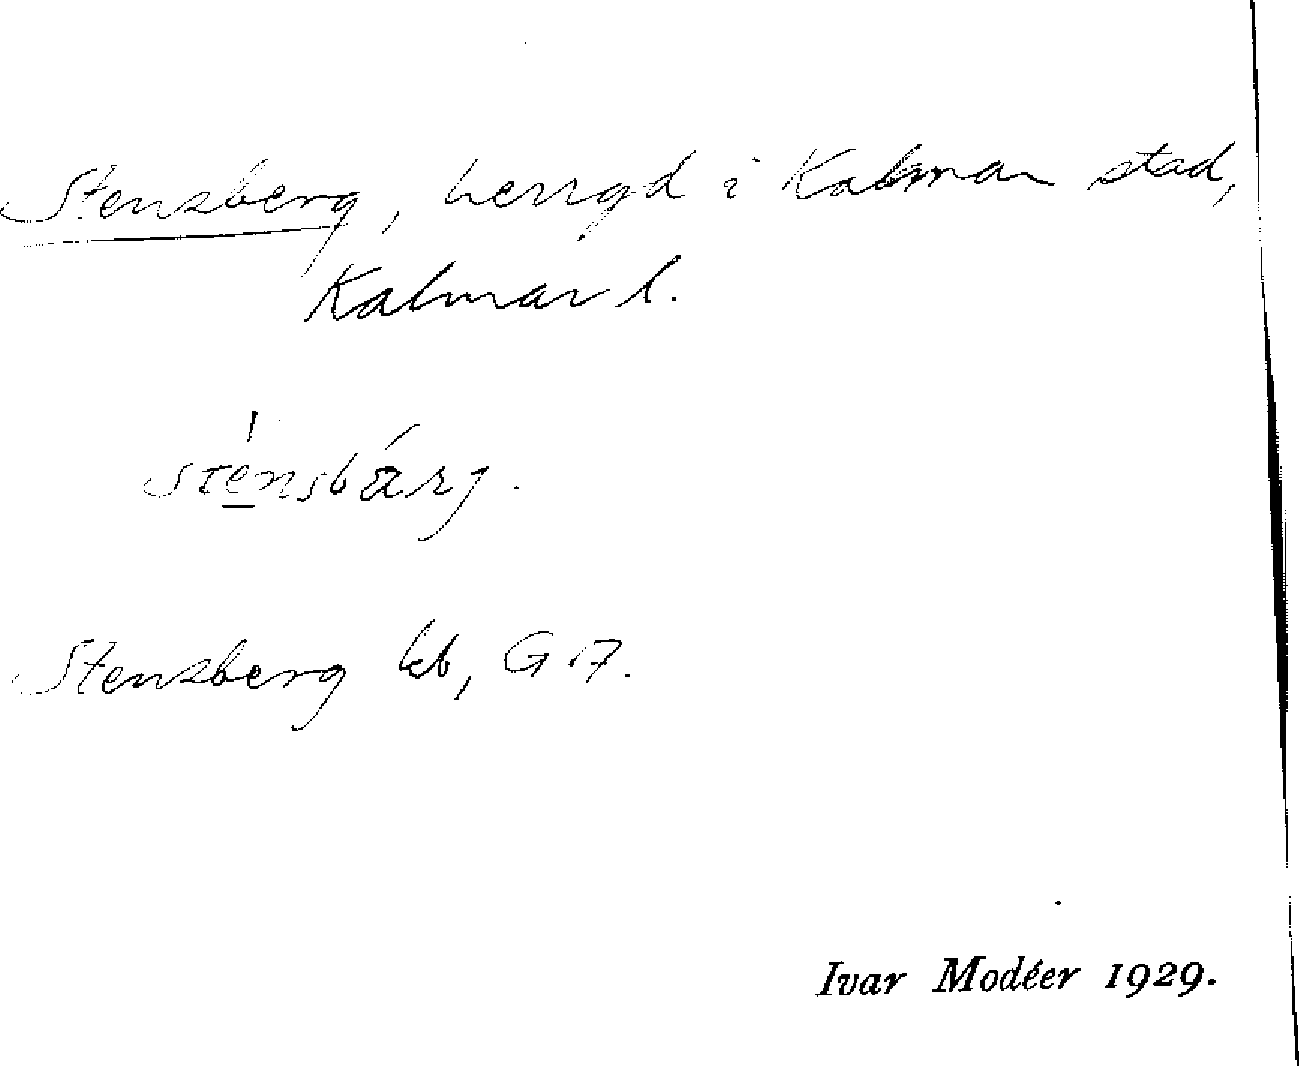 Stensberg, herrgd i Kalmar stad,
Kalmar l.
sténsbárj.
Stensberg kb, G 17.
Ivar Modéer 1929.